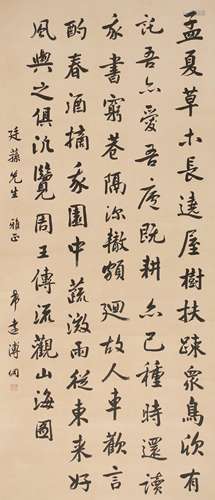 孟夏草木長遶屋樹扶疎眾鳥欣有
託吾亦愛吾廬既耕亦已種時還讀
我書窮巷隔深轍頗迴故人車歡言
酌春酒摘我園中蔬微雨從東來好
風與之俱汎覽周王傳流觀山海圖
廷蓀先生 雅正
溥侗